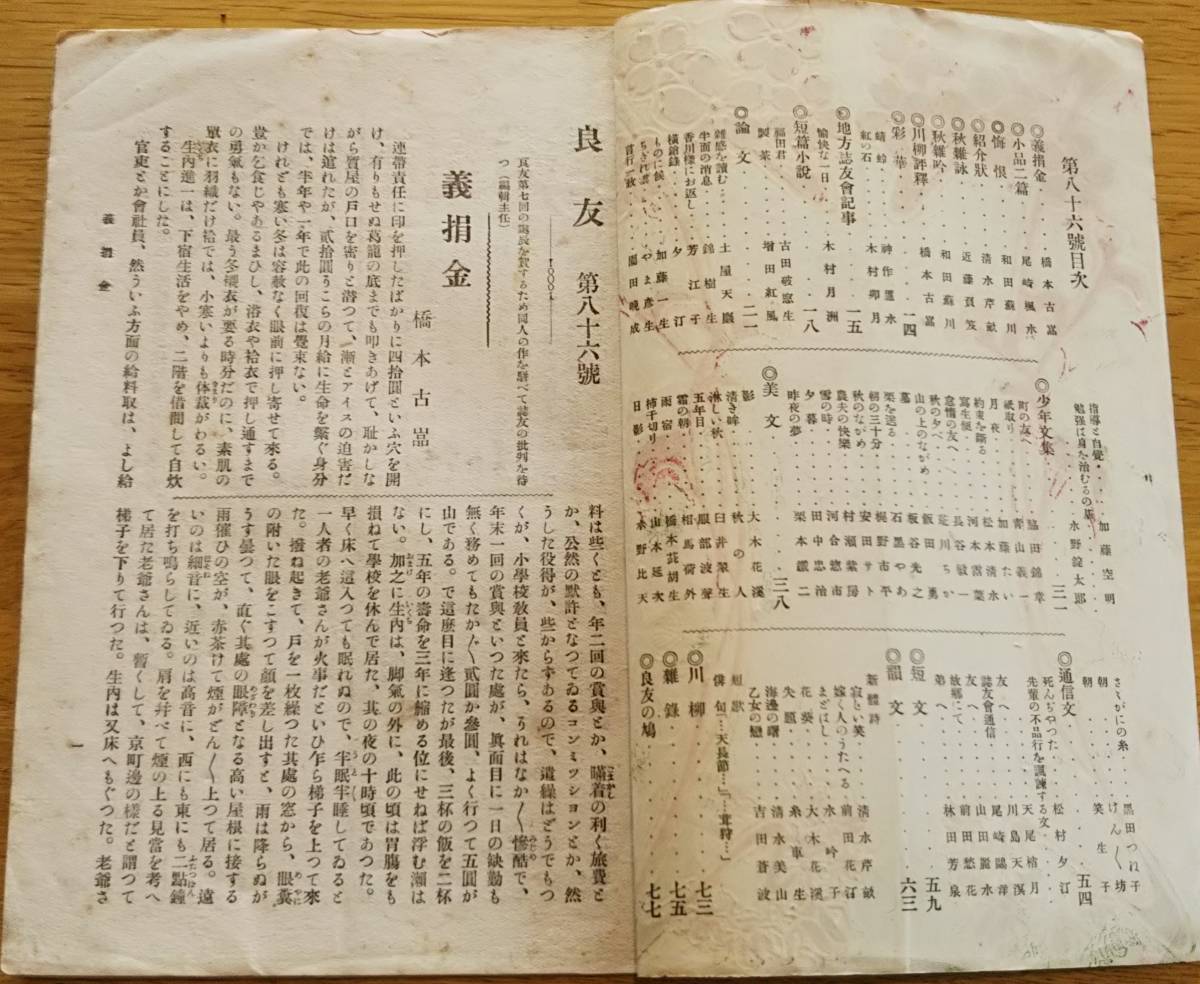 第八十六號目次
◎義捐金 橋本古
◎小品二篇 尾崎楓水
◎悔恨 和田蘇川
◎紹介狀 清水芹畝
◎秋雜詠 近藤
◎秋雜吟 和田蘇川
◎川柳評釋 橋本古
◎彩華 一四
蜻蛉 神作
紅の石 木村卯月
◎地方誌友會記事 一五
愉快な一日 木村月洲
◎短篇小說 一八
福田君 古田破窓生
製茶 增田紅風
◎論文 二一
雜感を讀む 土屋天巖
半面の消息 錦樹生
香川樣にお返し 芳江子
橫鎗錄 夕汀
ものに候 加藤一生
ちぎれ雲 やま彦生
言行一致 園田晚成
指導と自覺 加藤空明
勉强は身を治むるの基 水野錠太郎
◎少年文集 三一
町の友へ 脇田錦章
紙取り 青山義一
月夜 加藤たい
約束を斷る 松本清水
寫生便 河本雲葉
怠惰の友へ 長谷敏一
秋の夕べ 荒川ちか
山の上のながめ 飯田勇
墓 板谷光之
栗を送る 石黑やあ
朝の三十分 梶野市平
秋のながめ 安田サト
農夫の快樂 村瀬紫房
雪の時 河合惣市
夕暮 田中忠治
昨夜の夢 栗本鐵二
◎美文 三八
影 大木花溪
清き眸 秋の人
淋しい秋 臼井翠生
五年目 服部波聲
霜の朝 相馬荷外
雨宿 橋本莪胡生
柿千切り 山本延次
日影 水野比天
さくがにの糸 黑田つね子
朝 けん〱坊
朝 笑生子
◎通信文 五四
死んぢやつた 松村夕汀
先輩の不品行を諷諫する文 天尾楢月
友へ 川島天溟
誌友會通信 尾崎鷗洋
友へ 山田麗水
故鄉にて 前田愁花
弟へ 林田芳泉
◎短文 五九
◎韻文 六三
新體詩
寂しい笑 清水芹畝
嫁く人のうたへる 前田花汀
まどはし 水吟子
花葵 大木花溪
失題 糸車生
海邊の曙 清水美山
乙女の戀 吉田蒼波
短歌
俳句「…天長節…」「…茸狩…」
◎川柳 七三
◎雜錄 七五
◎良友の鳩 七七
良友 第八十六號
良友第七回の誕辰を賀するため同人の作を駢べて誌友の批判を待
つ（編輯主任）
義捐金
橋本古
連帶責任に印を押したばかりに四拾圓といふ穴を開
け、有りもせぬ葛籠の底までも叩きあげて、耻かしな
がら質屋の戸口を密りと潜つて、漸とアイスの迫害だ
けは遁れたが、貳拾圓りこらの月給に生命を繫ぐ身分
では、半年や一年で此の回復は覺束ない。
けれども寒い冬は容赦なく眼前に押し寄せて來る。
豈か乞食じやあるまひし、浴衣や袷衣で押し通すまで
の勇氣もない。最う冬襦衣が要る時分だのに、素肌の
單衣に羽織だけ袷では、小寒いよりも体裁がわるい。
生內進一は、下宿生活をやめ、二階を借間して自炊
することにした。
官吏とか會社員、然ういふ方面の給料取は、よし給
料は些くとも、年二回の賞與とか、瞞着の利く旅費と
か、公然の默許となつてゐるコンミツシヨンとか、然
うした役得が、些からずあるので、遣繰はどうでもつ
くが、小學校敎員と來たら、うれはなか〱慘酷で、
年末一回の賞與といつた處が、眞面目に一日の缺勤も
無く務めてもたか〲貳圓か參圓、よく行つて五圓が
山である。で這麽目に逢つたが最後、三杯の飯を二杯
にし、五年の壽命を三年に縮める位にせねば浮む瀨は
ない。加之に生內は、脚氣の外に、此の頃は胃膓をも
損ねて學校を休んで居た、其の夜の十時頃であつた。
早く床へ這入つても眠れぬので、半眠半睡してゐると
一人者の老爺さんが火事だといひ乍ら梯子を上つて來
た。撥ね起きて、戸を一枚繰つた其處の窓から、眼糞
の附いた眼をこすつて顏を差し出すと、雨は降らぬが
うす曇つて、直ぐ其處の眼障となる高い屋根に接する
雨催ひの空が、赤茶けて煙がどん〱上つて居る。遠
いのは細音に、近いのは高音に、西にも東にも二點鐘
を打ち鳴らしてゐる。肩を幷べて煙の上る見當を考へ
て居た老爺さんは、暫くして、京町邊の樣だと謂つて
梯子を下りて行つた。生內は又床へもぐつた。老爺さ
義捐金
一